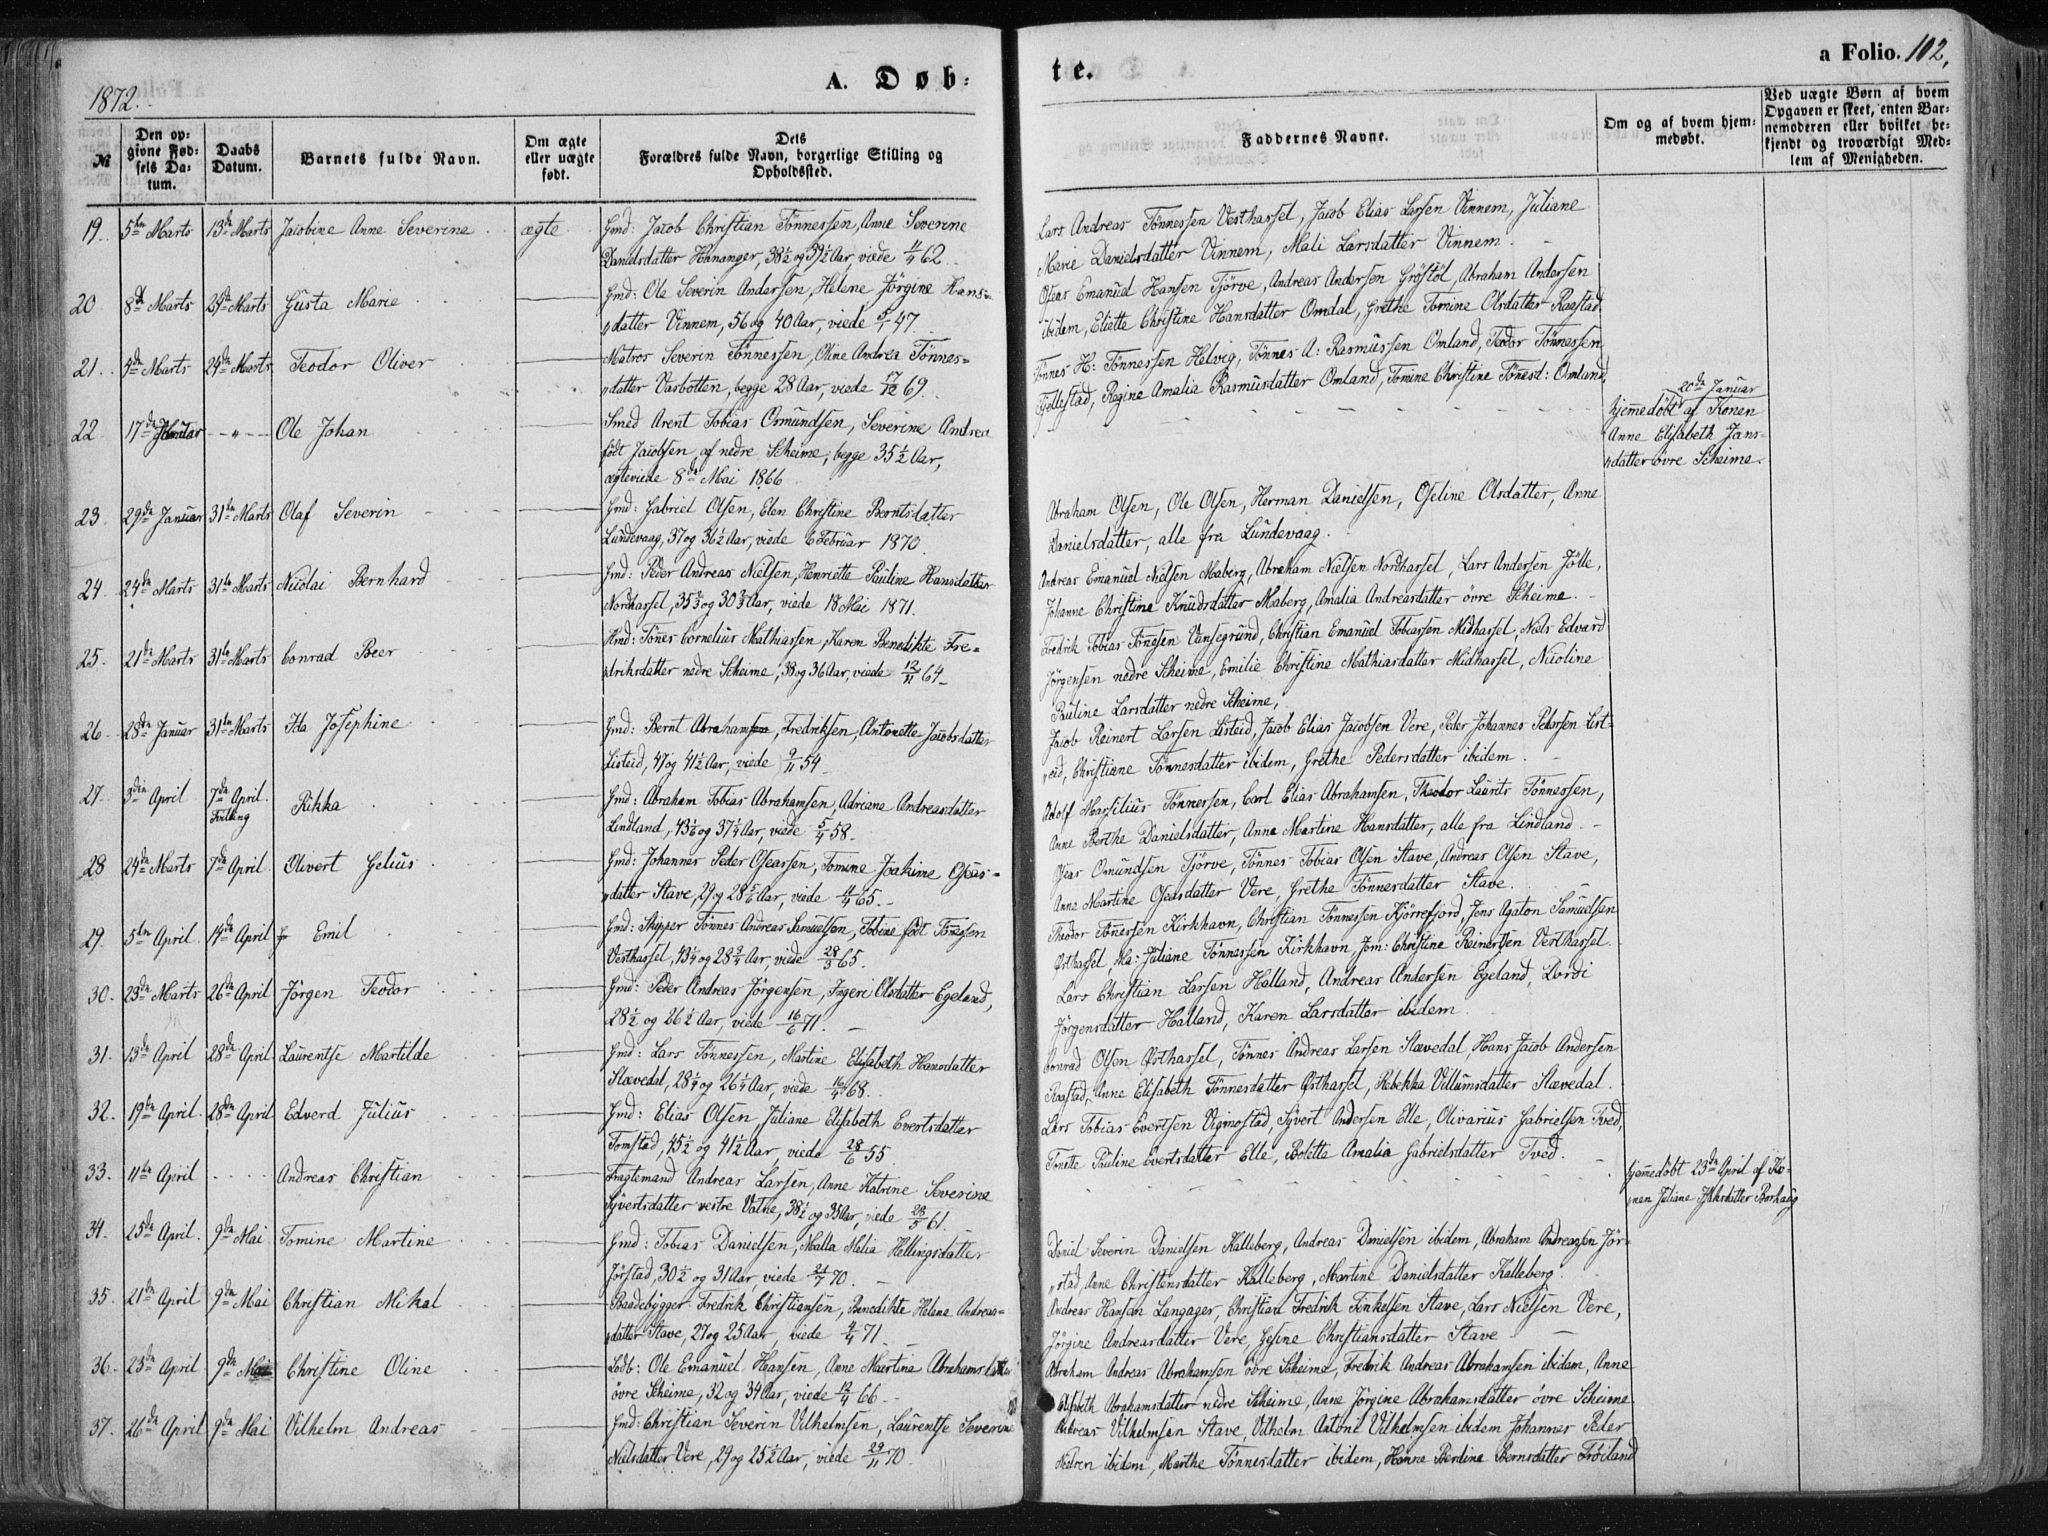 1872.
A. Døb:
te.
a Folio. 102.
№
Den op-
givne Fød-
sels Da-
tum.
Daabs
Datum.
Barnets fulde Navn.
Om ægte
eller uægte
født.
Dels
Forældres fulde Navn, borgerlige Stilling og
Opholdssted.
Faddernes Navne.
Om og af hvem hjem-
medøbt.
Ved uægte Børn af hvem
Opgaven er skeet, enten Bar-
nemoderen eller hvilket be-
kjendt og troværdigt Med-
lem af Menigheden.
19. 5te Marts 13de Marts Jacobine Anne Severine ægte Gmd: Jacob Christian Tönnessen, Anne Severine
Danielsdatter Hananger, 38½ og 39½ Aar, viede 11/4 62.
Lars Andreas Tönnessen Vesthassel, Jacob Elias Larsen Vinnem, Juliane
Marie Danielsdatter Vinnem, Mali Larsdatter Vinnem.
20. 8de Marts 24de Marts Gusta Marie Gmd: Ole Severin Andersen, Helene Jörgine Hans-
datter Vinnem, 56 og 40 Aar, viede 5/1 47.
Oseas Emanuel Hansen Tjörve, Andreas Andersen Gröstöl, Abraham Andersen
ibidem, Eliette Christine Hansdatter Omdal, Grethe Tomine Olsdatter Raastad.
21. 4de Marts 24de Marts Teodor Oliver Matros Severin Tönnessen, Oline Andrea Tönnes=
datter Vasbotten, begge 28 Aar, viede 17/12 69.
Tönnes H: Tönnessen Helvig, Tönnes A: Rasmussen Omland, Teodor Tönnessen
Fjellestad, Regine Amalia Rasmusdatter Omland, Tomine Christine Tönesd: Omland.
22 17de Januar - " - Ole Johan Smed Arent Tobias Osmundsen, Severine Andrea
født Jacobsen, af nedre Skeime, begge 35½ Aar,
ægteviede 8de Mai 1866
20de Januar
hjemedöbt af Konen
Anne Elisabeth Jans-
datter övre Skeime.
23. 29de Januar 31te Marts Olaf Severin Gmd: Gabriel Olsen, Elen Christine Berntsdatter
Lundevaag, 37 og 36½ Aar, viede 6 Februar 1870.
Abraham Olsen, Ole Olsen, Herman Danielsen, Oseline Olsdatter, Anne
Danielsdatter, alle fra Lundevaag.
24. 24de Marts 31te Marts Nicolai Bernhard Gmd: Peder Andreas Nielsen, Henriette Pauline Hansdatter
Nordhassel, 35⅔ og 30⅔ Aar, viede 18 Mai 1871.
Andreas Emanuel Nielsen Maberg, Abraham Nielsen Nordhassel, Lars Andersen Jölle,
Johanne Christine Knudsdatter Maberg, Amalia Andreasdatter övre Skeime.
25. 21de Marts 31te Marts Conrad Beer Hmd: Tönes Cornelius Mathiassen, Karen Benedikte Fre-
driksdatter nedre Skeime, 38 og 36 Aar, viede 12/11 64.
Fredrik Tobias Tönesen Vansegrund, Christian Emanuel Tobiassen Midhassel, Niels Edvard
Jörgensen nedre Skeime, Emilie Christine Mathiasdatter Midhassel, Nicoline
Pauline Larsdatter nedre Skeime,
26 28de Januar 31te Marts Ida Josephine Gmd: Bernt Abrahamsen, Fredriksen, Antonette Jacobsdatter
Listeid, 47 og 41½ Aar, viede 9/11 54
Jacob Reinert Larsen Listeid, Jacob Elias Jacobsen Vere, Peder Johannes Pedersen List-
eid, Christiane Tönnesdatter ibidem, Grethe Pedersdatter ibidem.
27. 3die April 7de April Tvilling Rikka Gmd: Abraham Tobias Abrahamsen, Adriane Andreasdatter
Lindland, 43⅙ og 37¼ Aar, viede 5/4 58.
Adolf Marselius Tönnessen, Carl Elias Abrahamsen, Theodor Laurits Tönnessen,
Anne Berthe Danielsdatter, Anne Martine Hansdatter, alle fra Lindland.
28 24de Marts 7de April Olivert Gelius Gmd: Johannes Peder Oseassen, Tomine Joakime Oseas=
datter Stave, 29 og 28⅚ Aar, viede 11/4 65.
Oseas Omundsen Tjörve, Tönnes Tobias Olsen Stave, Andreas Olsen Stave,
Anne Martine Oseasdatter Vere, Grethe Tönnesdatter Stave.
29. 5te April 14de April Emil Gmd: Skipper Tönnes Andreas Samuelsen, Tobine födt Tönesen
Vesthassel, 43¼ og 28¾ Aar, viede 28/3 65.
Theodor Tönnessen Kirkhavn, Christian Tönnessen Kjörrefjord, Jens Agaton Samuelsen
Østhassel, Ma: Juliane Tönnessen Kirkhavn, Jom: Christine Reinertsen Vesthassel.
30. 23de Marts 26de April Jörgen Teodor Gmd: Peder Andreas Jörgensen, Ingeri Olsdatter Egeland,
28½ og 26½ Aar, viede 16/6 71.
Lars Christian Larsen Halland, Andreas Andersen Egeland, Lordi
Jörgensdatter Halland, Karen Larsdatter ibidem
31. 13de April 28de April Laurentse Martilde Gmd: Lars Tönnessen, Martine Elisabeth Hansdatter
Slævedal, 28¼ og 26¼ Aar, viede 16/4 68.
Conrad Olsen Østhassel, Tönnes Andreas Larsen Slævedal, Hans Jacob Andersen
Raastad, Anne Elisabeth Tönnesdatter Østhassel, Rebekka Villumsdatter Slævedal.
32. 19de April 28de April Edverd Julius Gmd: Elias Olsen, Juliane Elisabeth Evertsdatter
Tomstad, 45½ og 41½ Aar, viede 28/6 55
Lars Tobias Evertsen Vigmostad, Syvert Andersen Elle, Olivarius Gabrielsen Tved,
Tonette Pauline Evertsdatter Elle, Boletta Amalia Gabrielsdatter Tved.
33. 11te April Andreas Christian Fragtemand Andreas Larsen, Anne Katrine Severine
Syvertsdatter vestre Vatne, 38½ og 35 Aar, viede 28/5 61.
hjemedöbt 23de April af Ko-
nen Juliane Isaksdatter Borhaug
34. 25de April. 9de Mai Tomine Martine Gmd: Tobias Danielsen, Malla Melia Hellingsdatter
Jörstad, 30½ og 31 Aar, viede 21/7 70.
Daniel Severin Danielsen Kalleberg, Andreas Danielsen ibidem, Abraham Andreassen Jör-
stad, Anne Christensdatter Kalleberg, Martine Danielsdatter Kalleberg.
35. 21de April 9de Mai Christian Mikal Baadebygger Fredrik Christiansen, Benedikte Helene Andreas-
datter Stave, 27 og 25 Aar, viede 4/4 71
Andreas Hanson Langager, Christian Fredrik Tinkelsen Stave, Lars Nielsen Vere,
Jörgine Andreasdatter Vere, Gesine Christiansdatter Stave
36. 23de April 9de Mai Christine Oline Lodb: Ole Emanuel Hansen, Anne Martina Abrahamsdatter
övre Skeime, 32 og 34 Aar, viede 12/4 66.
Abraham Andreas Abrahamsen övre Skeime, Fredrik Andreas Abrahamsen ibidem, Anne
Elisabeth Abrahamsdatter nedre Skeime, Anne Jörgine Abrahamsdatter övre Skeime
37. 26de April 9de Mai Vilhelm Andreas Gmd: Christian Severin Vilhelmsen, Laurentse Severine
Nielsdatter Vere, 29 og 25½ Aar, viede 29/11 70.
Andreas Vilhelmsen Stave, Vilhelm Antoni Vilhelmsen ibidem Johannes Peder
Nielsen ibidem, Marthe Tönnesdatter ibidem, Hanne Berdine Berntsdatter Tröiland